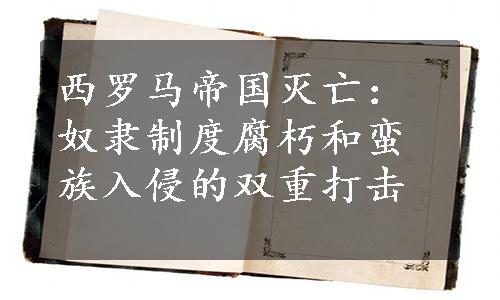 西罗马帝国灭亡：
奴隶制度腐朽和蛮
族入侵的双重打击